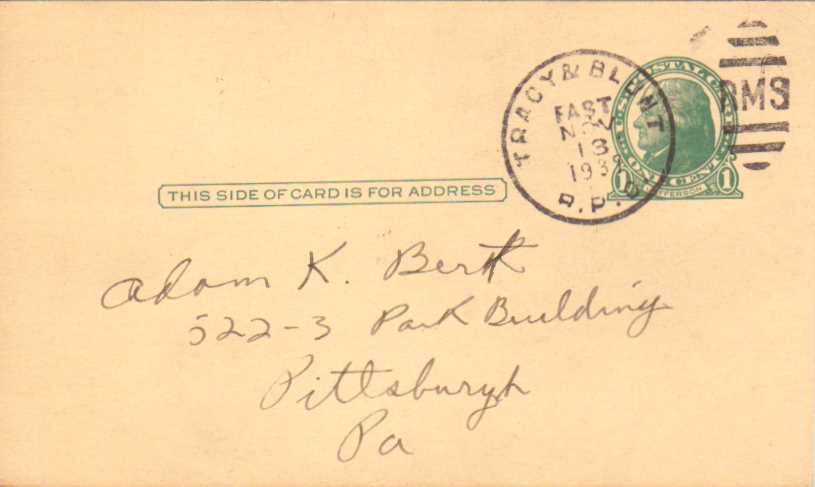 TRACY & BLUNT
EAST
NOV
13
193
R.P.O.
RMS
U.S. POSTAL CARD
1 ONE CENT 1
JEFFERSON
THIS SIDE OF CARD IS FOR ADDRESS
Adam K. Bert
522-3 Park Building
Pittsburgh
Pa